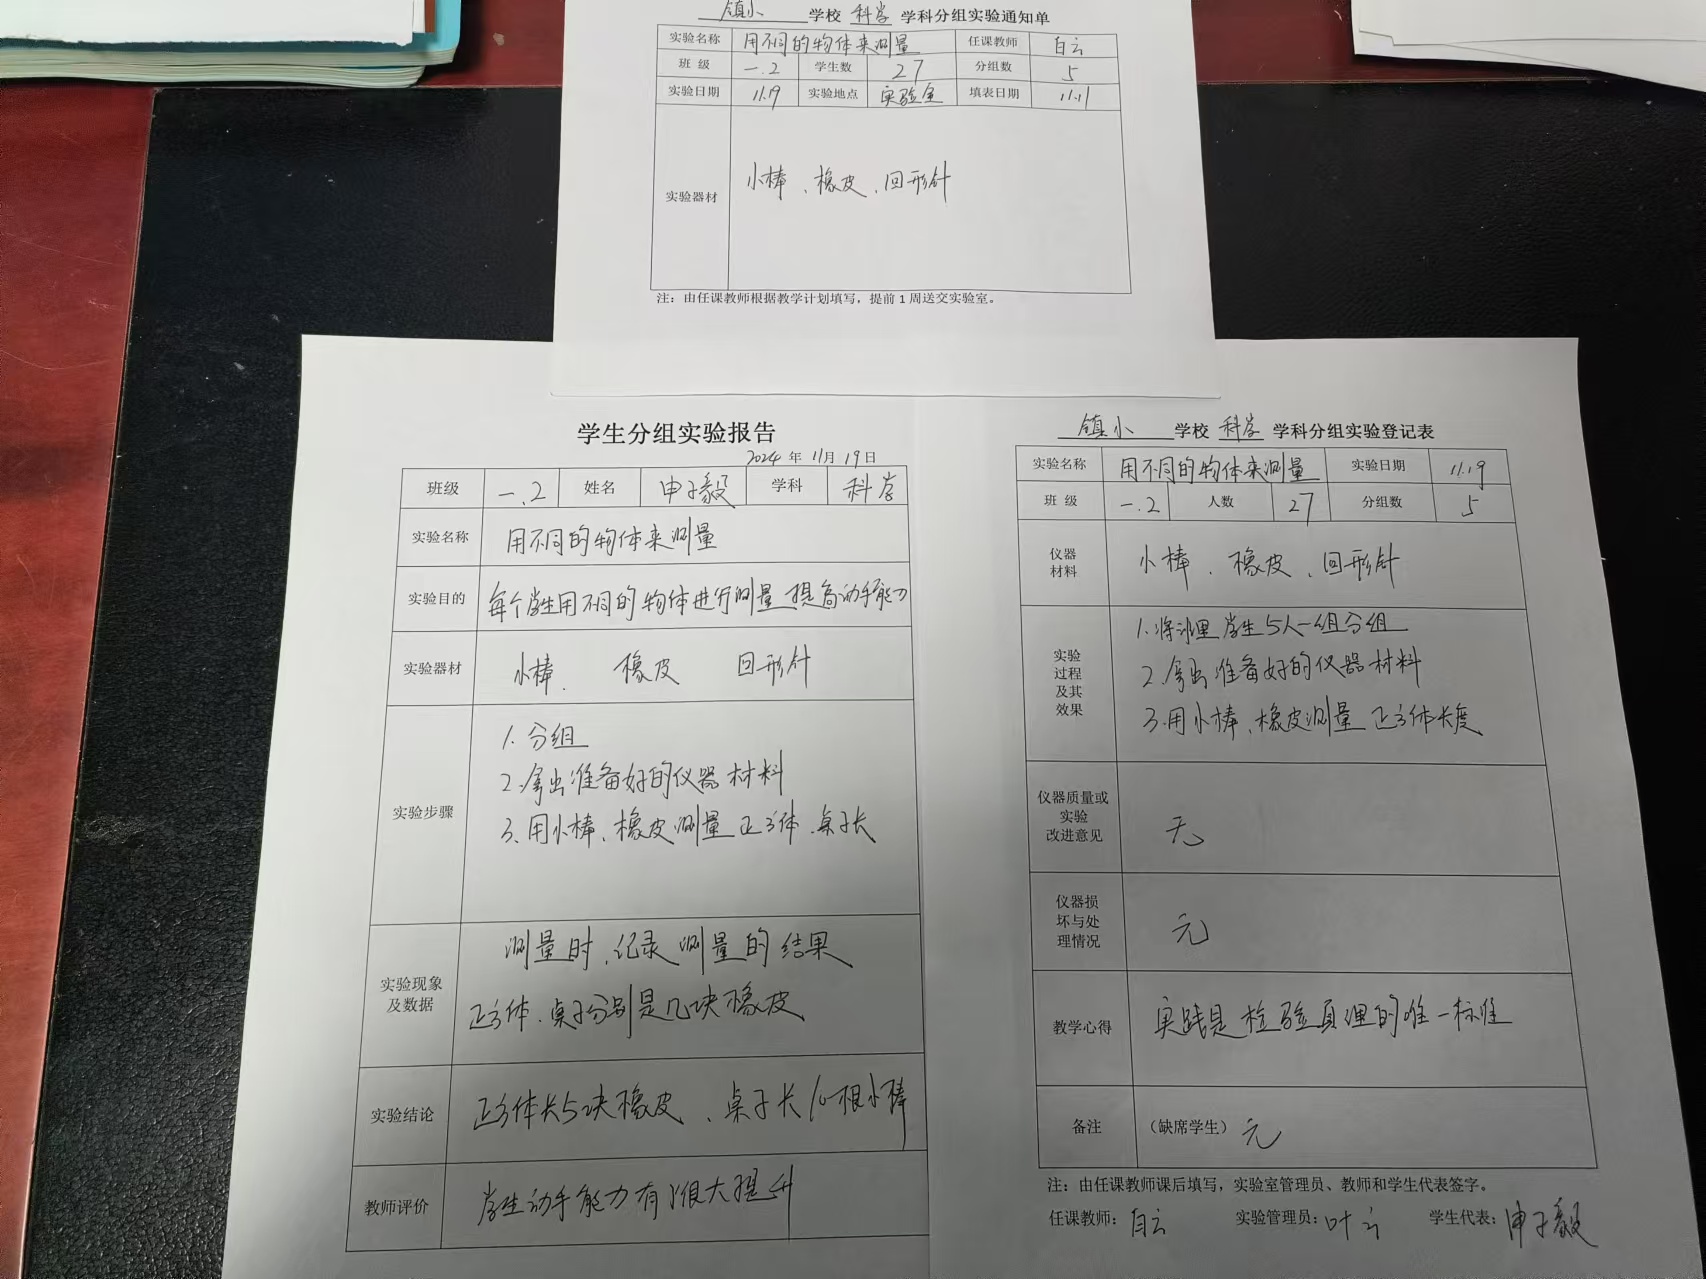 镇小 学校 科学 学科分组实验通知单
实验名称 用不同的物体来测量 任课教师 白云
班 级 一.2 学生数 27 分组数 5
实验日期 11.19 实验地点 实验室 填表日期 11.11
实验器材 小棒、橡皮、回形针
注：由任课教师根据教学计划填写，提前1周送交实验室。
学生分组实验报告
2024 年 11月 19日
班级 一.2 姓名 申子毅 学科 科学
实验名称 用不同的物体来测量
实验目的 每个学生用不同的物体进行测量 提高动手能力
实验器材 小棒、 橡皮 回形针
实验步骤
1. 分组
2.拿出准备好的仪器材料
3、用小棒、橡皮测量正方体、桌子长
实验现象
及数据
测量时、记录测量的结果
正方体、桌子分别是几块橡皮
实验结论 正方体长5块橡皮、桌子长10根小棒
教师评价 学生动手能力有很大提升
镇小 学校 科学 学科分组实验登记表
实验名称 用不同的物体来测量 实验日期 11.19
班 级 一.2 人数 27 分组数 5
仪器
材料
小棒、橡皮、回形针
实验
过程
及其
效果
1.将班里学生5人一组分组
2.拿出准备好的仪器材料
3.用小棒、橡皮测量正方体长度
仪器质量或
实验
改进意见
无
仪器损
坏与处
理情况
无
教学心得 实践是检验真理的唯一标准
备注 （缺席学生） 无
注：由任课教师课后填写，实验室管理员、教师和学生代表签字。
任课教师：白云 实验管理员：叶云 学生代表：申子毅